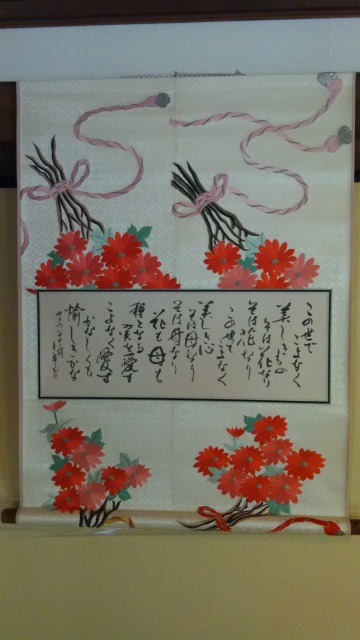 この世で
こよなく
美しきもの
そは花なり
そは花なり
この世で
こよなく
美しき心
そは母なり
そは母なり
花も母も
種となる
実を愛す
こよなく愛す
かなしくも
愉しきかな